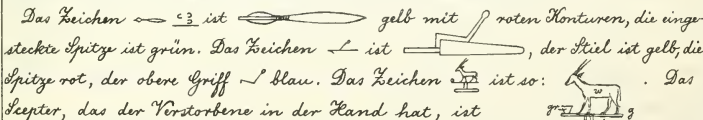 Das Zeichen c3 ist gelb mit roten Konturen, die einge-
steckte Spitze ist grün. Das Zeichen ist , der Stiel ist gelb, die
Spitze rot, der obere Griff blau. Das Zeichen ist so: . Das
Scepter, das der Verstorbene in der Hand hat, ist gr w g